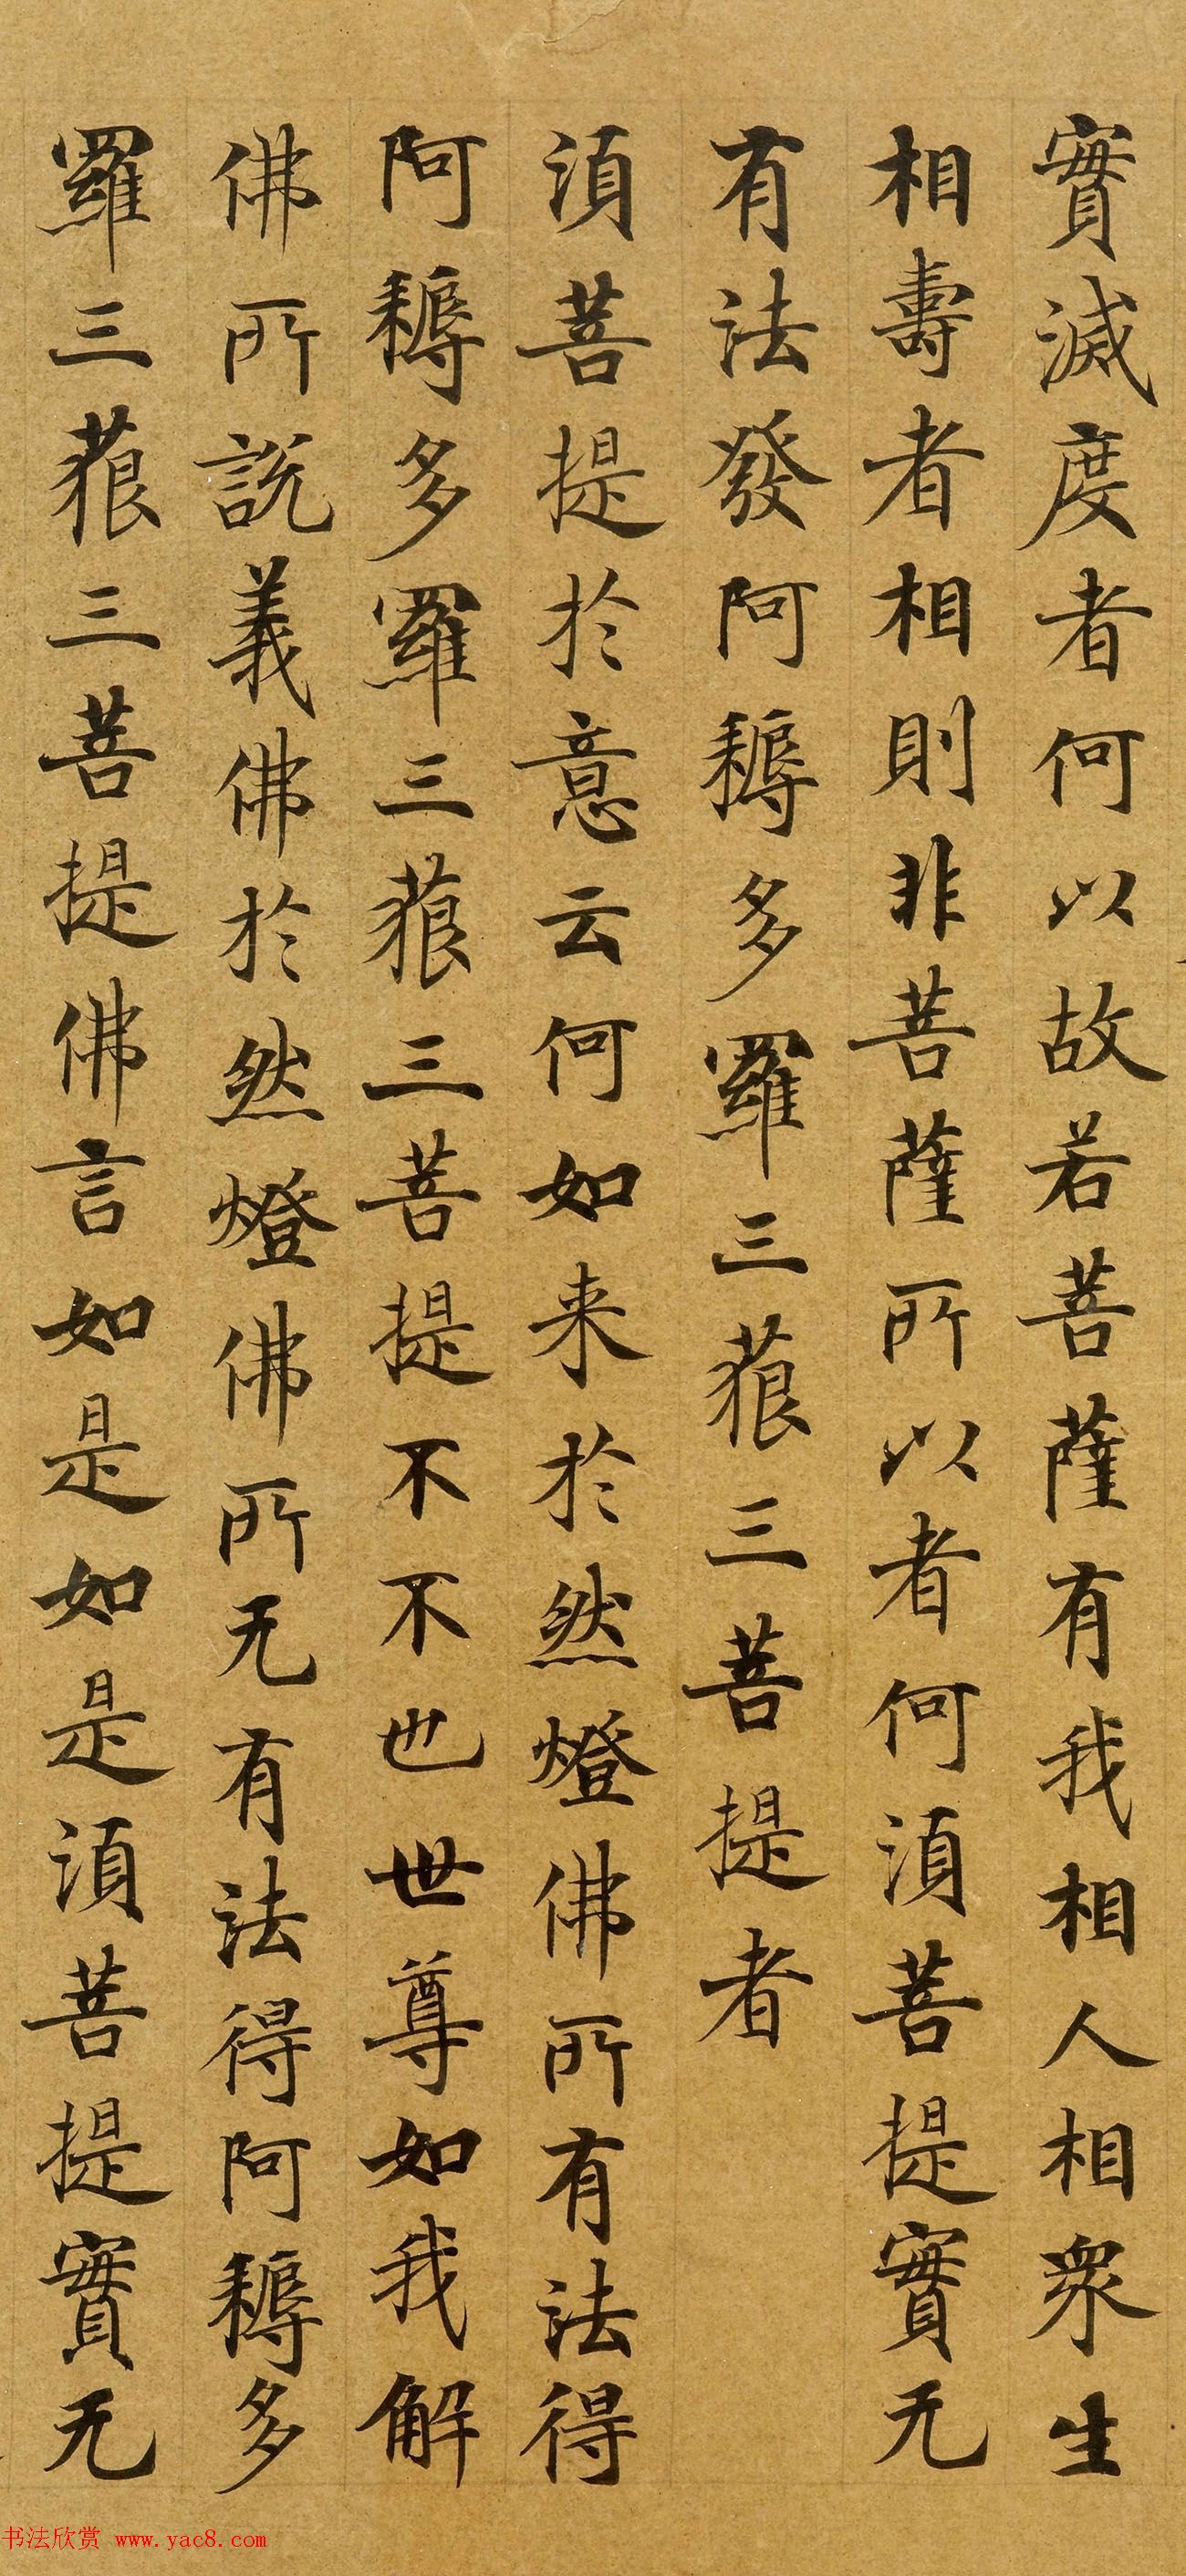 實滅度者何以故若菩薩有我相人相衆生
相壽者相則非菩薩所以者何湏菩提實无
有法發阿耨多羅三藐三菩提者
湏菩提於意云何如来於然燈佛所有法得
阿耨多羅三藐三菩提不不也世尊如我解
佛所說義佛於然燈佛所无有法得阿耨多
羅三藐三菩提佛言如是如是湏菩提實无
书法欣赏 www.yac8.com